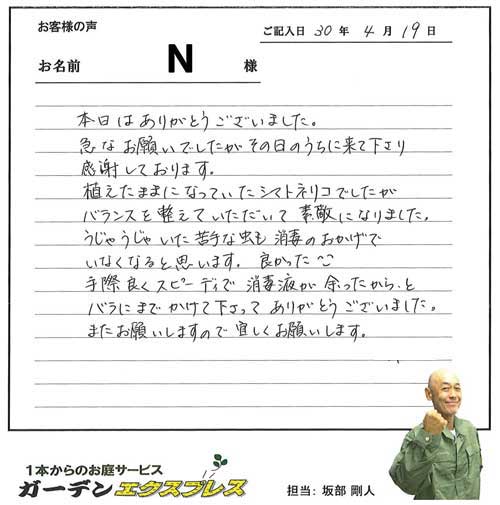 お客様の声
ご記入日 30 年 4 月 19 日
お名前 N 様
本日はありがとうございました。
急なお願いでしたがその日のうちに来て下さり
感謝しております。
植えたままになっていたシマトネリコでしたが
バランスを整えていただいて素敵になりました。
うじゃうじゃいた苦手な虫も消毒のおかげで
いなくなると思います。良かった
手際良くスピーディで消毒液が余ったから、と
バラにまでかけて下さってありがとうございました。
またお願いしますので宜しくお願いします。
1本からのお庭サービス
ガーデンエクスプレス
担当: 坂部 剛人